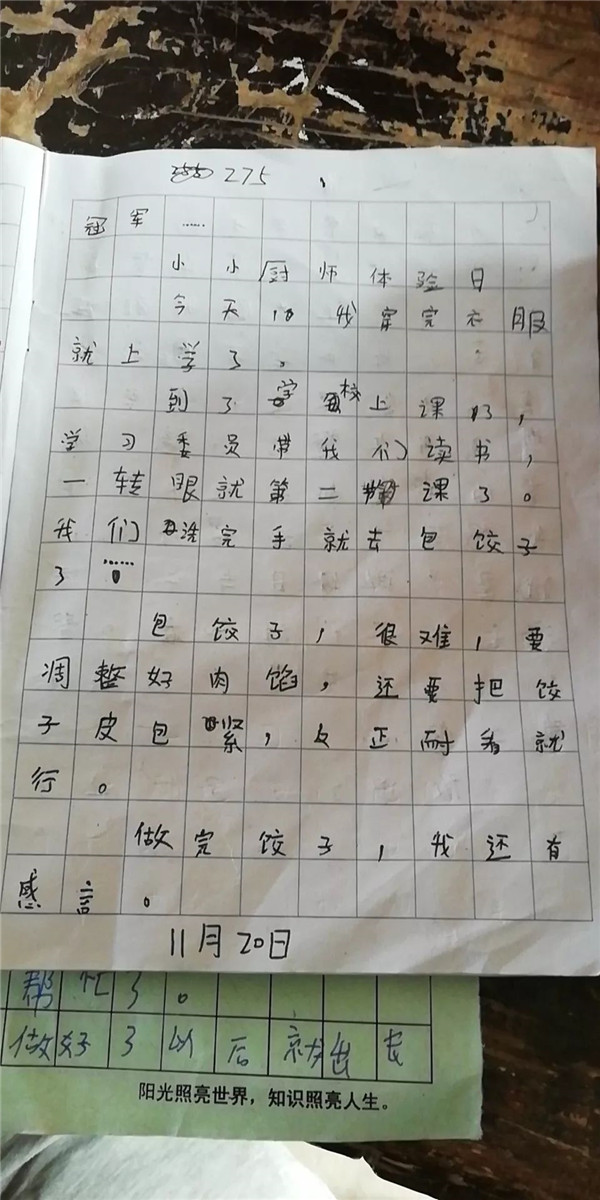 275
冠军……
小小厨师体验日
今天,我穿完衣服
就上学了。
到了学校上课好,
学习委员带我们读书,
一转眼就第二课了。
我们洗完手就去包饺子
了……
包饺子,很难,要
调整好肉馅,还要把饺
子皮包紧,反正耐看就
行。
做完饺子,我还有
感言。
11月20日
帮忙了。
做好了以后就出去
阳光照亮世界,知识照亮人生。